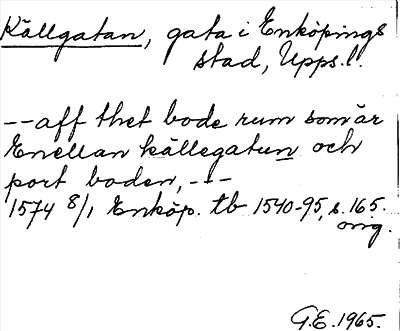 Källgatan, gata i Enköpings
stad, Upps.l.
--aff thet bode rum som är
Enellan källegatun och
port boden, ---
1574 8/1 Enköp. tb 1540-95, s. 165.
orig.
G.E. 1965.